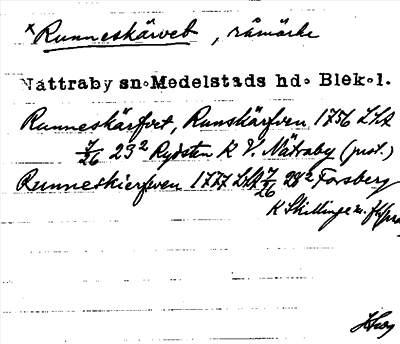 x Runneskärvet, råmärke
Nättraby sn. Medelstads hd. Blek.l.
Runneskärfvet, Runskärfven 1756 LSA
7/26 23² Rydsten R V. Nätraby (prot.)
Runneskierfwen 1777 LSA 7/26 28² Forsberg
K Skillinge m. fl.